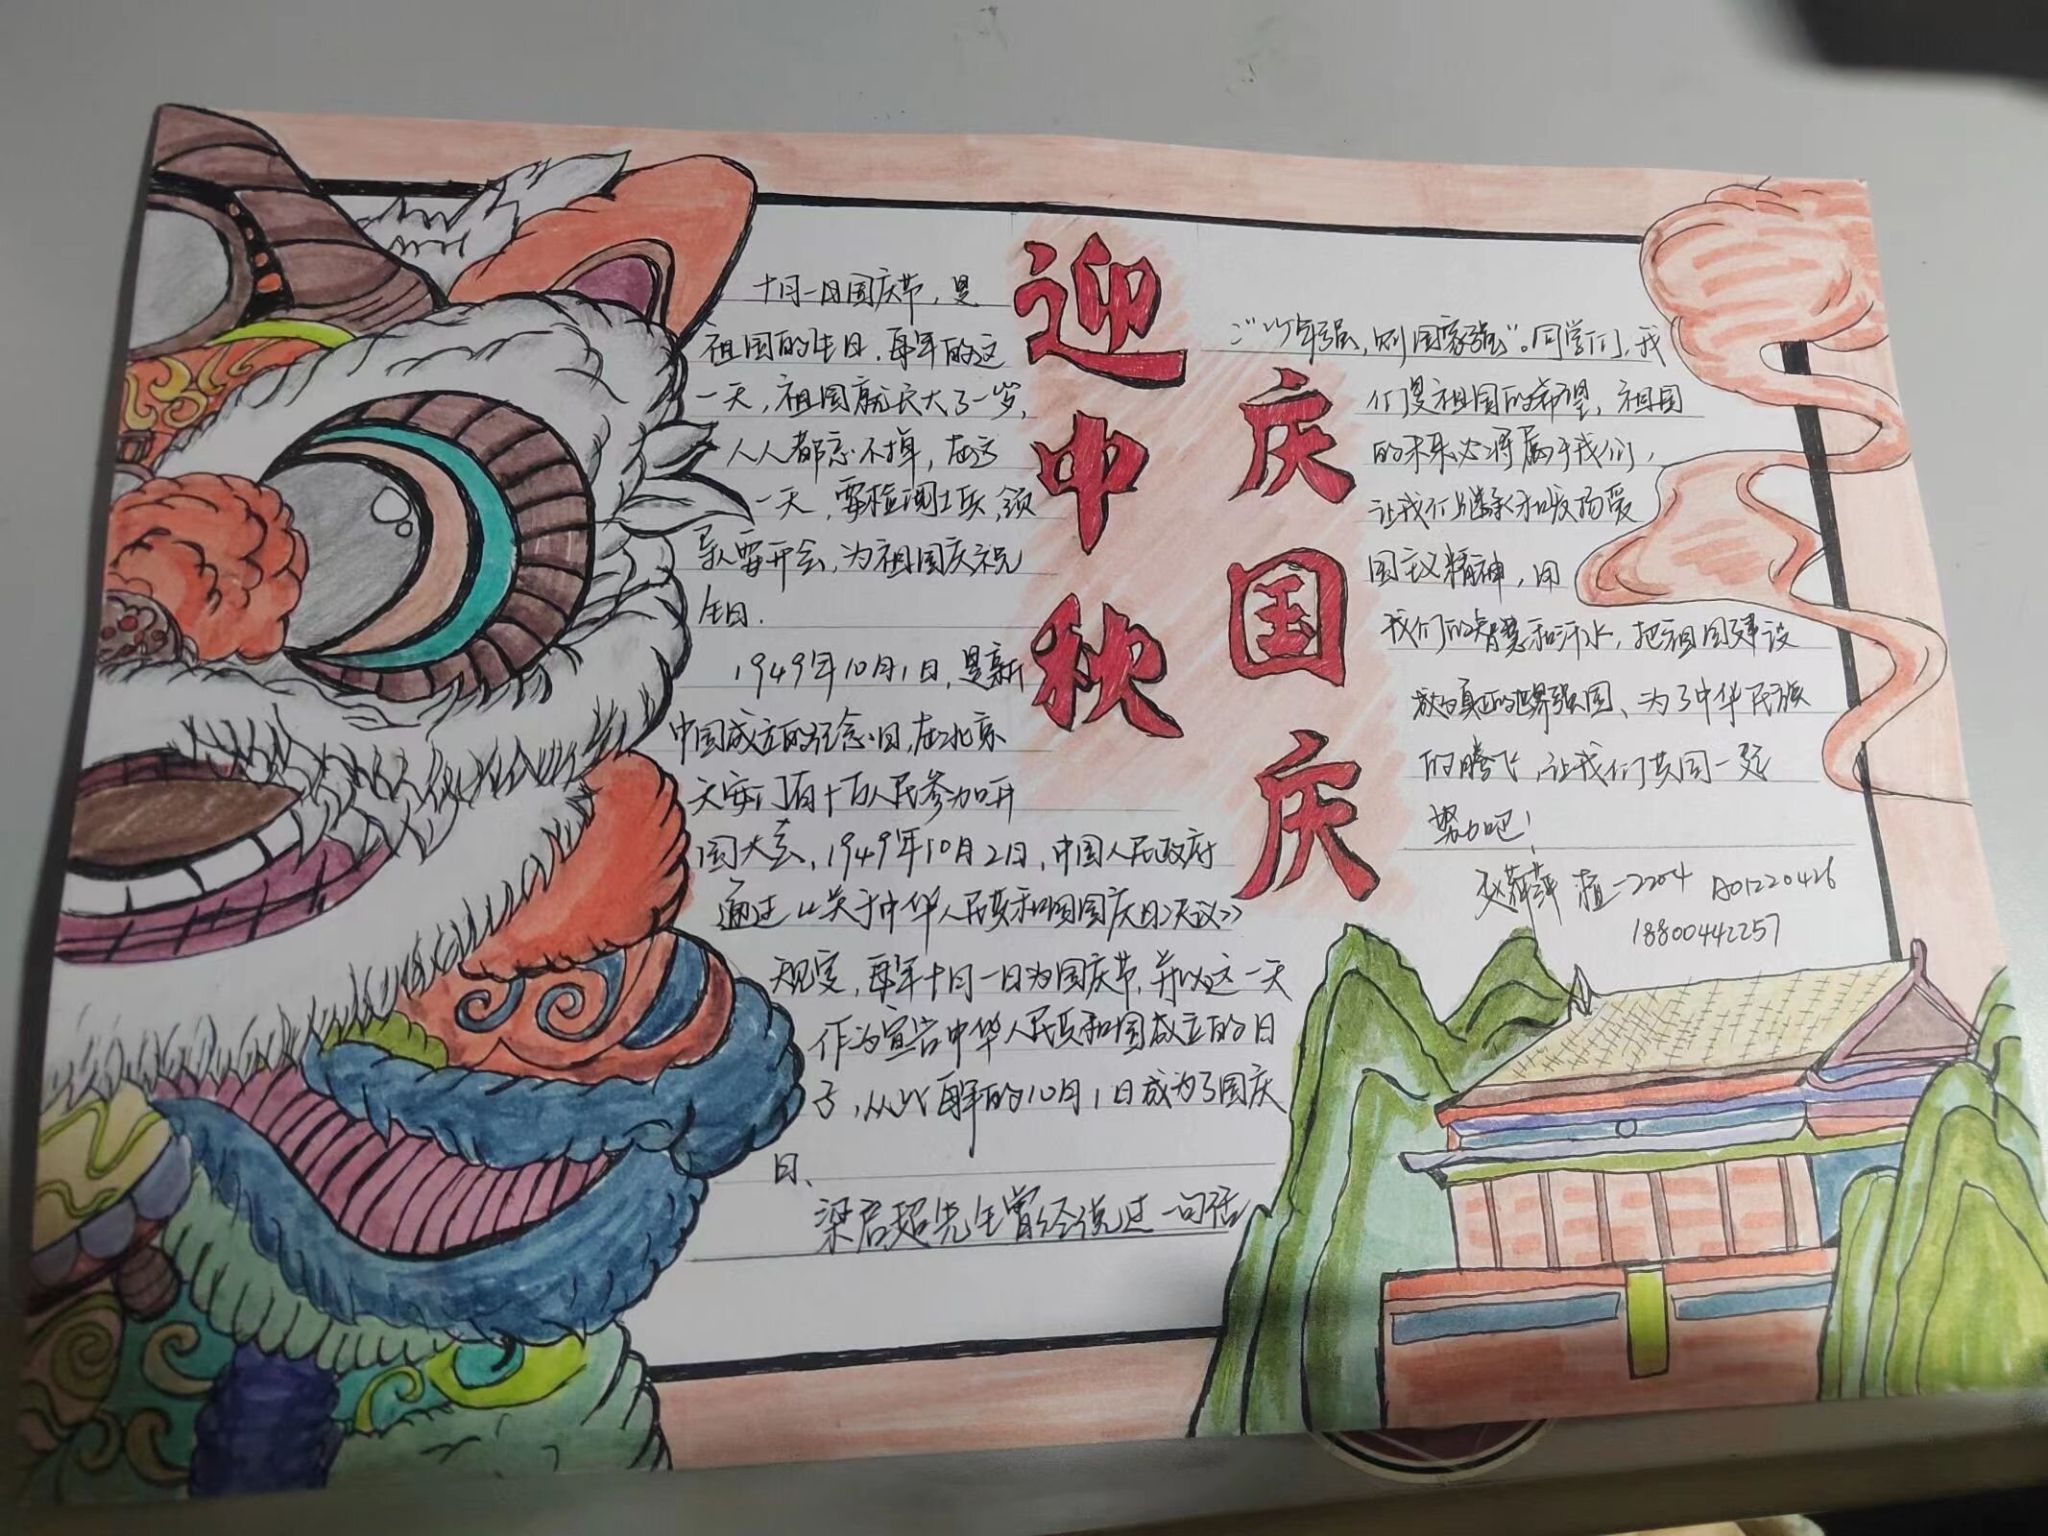 迎中秋
庆国庆
十月一日国庆节，是
祖国的生日，每年的这
一天，祖国就长大了一岁，
人人都忘不掉，在这
一天，要检阅士兵，领
导人要开会，为祖国庆祝
生日．
1949年10月1日，是新
中国成立的纪念日，在北京
天安门有十万人民参加开
国大会，1949年10月2日，中国人民政府
通过《关于中华人民共和国国庆日决议》
规定，每年十月一日为国庆节，并以这一天
作为宣告中华人民共和国成立的日
子，从此每年的10月1日成为了国庆
日、
梁启超先生曾经说过一句话
：“少年强，则国家强”。同学们，我
们是祖国的希望，祖国
的未来必将属于我们，
让我们继承和发扬爱
国主义精神，用
我们的智慧和汗水，把祖国建设
成为真正的世界强国、为了中华民族
的腾飞，让我们共同一起
努力吧！
植一2204 A01220426
18800442257